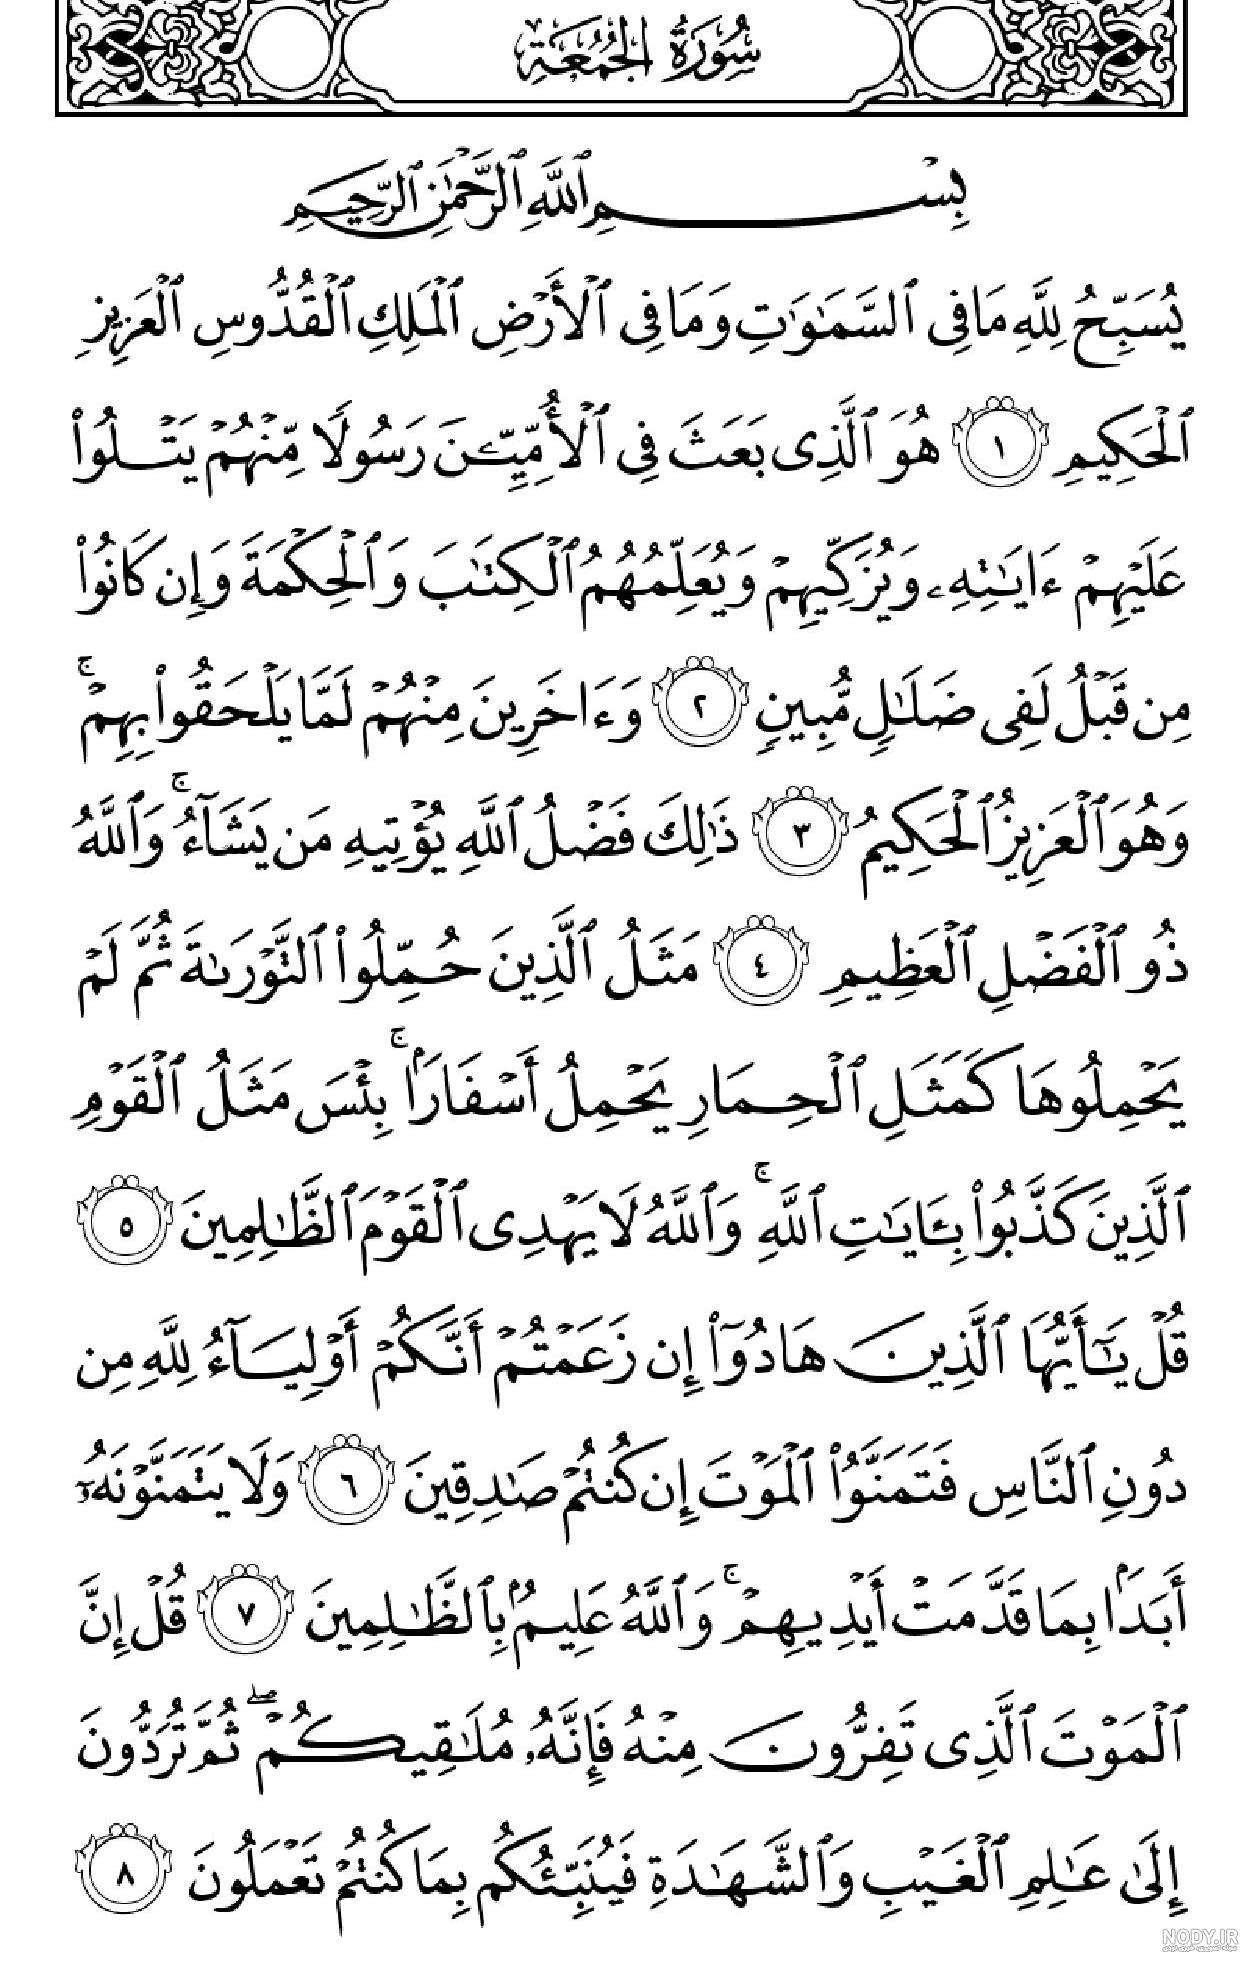 سُورَةُ الجُمُعَةِ
بِسْمِ ٱللَّهِ ٱلرَّحْمَٰنِ ٱلرَّحِيمِ
يُسَبِّحُ لِلَّهِ مَا فِى ٱلسَّمَٰوَٰتِ وَمَا فِى ٱلْأَرْضِ ٱلْمَلِكِ ٱلْقُدُّوسِ ٱلْعَزِيزِ
ٱلْحَكِيمِ ١ هُوَ ٱلَّذِى بَعَثَ فِى ٱلْأُمِّيِّـۧنَ رَسُولًا مِّنْهُمْ يَتْلُوا۟
عَلَيْهِمْ ءَايَٰتِهِۦ وَيُزَكِّيهِمْ وَيُعَلِّمُهُمُ ٱلْكِتَٰبَ وَٱلْحِكْمَةَ وَإِن كَانُوا۟
مِن قَبْلُ لَفِى ضَلَٰلٍ مُّبِينٍ ٢ وَءَاخَرِينَ مِنْهُمْ لَمَّا يَلْحَقُوا۟ بِهِمْ ۚ
وَهُوَ ٱلْعَزِيزُ ٱلْحَكِيمُ ٣ ذَٰلِكَ فَضْلُ ٱللَّهِ يُؤْتِيهِ مَن يَشَآءُ ۚ وَٱللَّهُ
ذُو ٱلْفَضْلِ ٱلْعَظِيمِ ٤ مَثَلُ ٱلَّذِينَ حُمِّلُوا۟ ٱلتَّوْرَىٰةَ ثُمَّ لَمْ
يَحْمِلُوهَا كَمَثَلِ ٱلْحِمَارِ يَحْمِلُ أَسْفَارًۢا ۚ بِئْسَ مَثَلُ ٱلْقَوْمِ
ٱلَّذِينَ كَذَّبُوا۟ بِـَٔايَٰتِ ٱللَّهِ ۚ وَٱللَّهُ لَا يَهْدِى ٱلْقَوْمَ ٱلظَّٰلِمِينَ ٥
قُلْ يَٰٓأَيُّهَا ٱلَّذِينَ هَادُوٓا۟ إِن زَعَمْتُمْ أَنَّكُمْ أَوْلِيَآءُ لِلَّهِ مِن
دُونِ ٱلنَّاسِ فَتَمَنَّوُا۟ ٱلْمَوْتَ إِن كُنتُمْ صَٰدِقِينَ ٦ وَلَا يَتَمَنَّوْنَهُۥٓ
أَبَدًۢا بِمَا قَدَّمَتْ أَيْدِيهِمْ ۚ وَٱللَّهُ عَلِيمٌۢ بِٱلظَّٰلِمِينَ ٧ قُلْ إِنَّ
ٱلْمَوْتَ ٱلَّذِى تَفِرُّونَ مِنْهُ فَإِنَّهُۥ مُلَٰقِيكُمْ ۖ ثُمَّ تُرَدُّونَ
إِلَىٰ عَٰلِمِ ٱلْغَيْبِ وَٱلشَّهَٰدَةِ فَيُنَبِّئُكُم بِمَا كُنتُمْ تَعْمَلُونَ ٨
NODY.IR